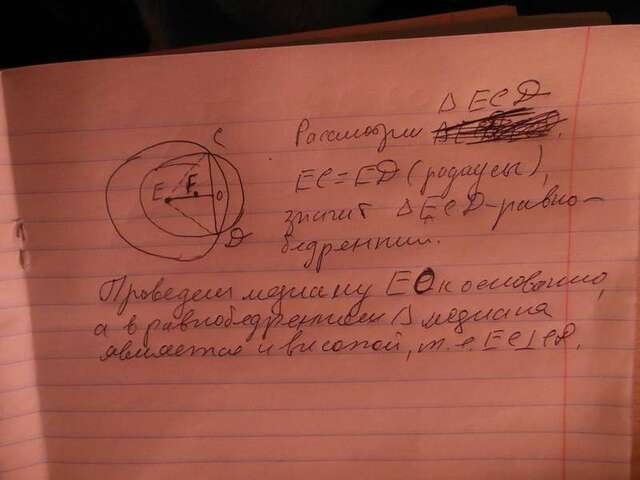 C
E
F
O
D
Рассмотрим
△ ECD
EC = ED (радиусы),
значит △ ECD - равно-
бедренный.
Проведем медиану EO к основанию,
а в равнобедренном △ медиана
является и высотой, т. е. EC ⊥ CD.